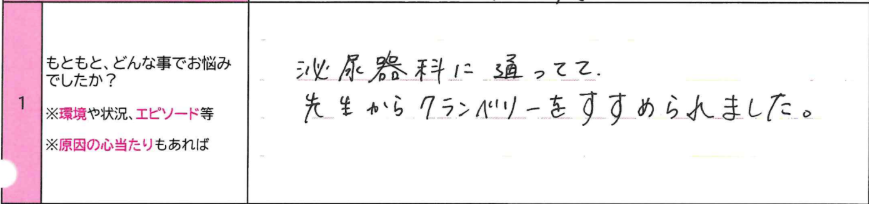 1
もともと、どんな事でお悩み
でしたか？
※環境や状況、エピソード等
※原因の心当たりもあれば
泌尿器科に通ってて.
先生からクランベリーをすすめられました。